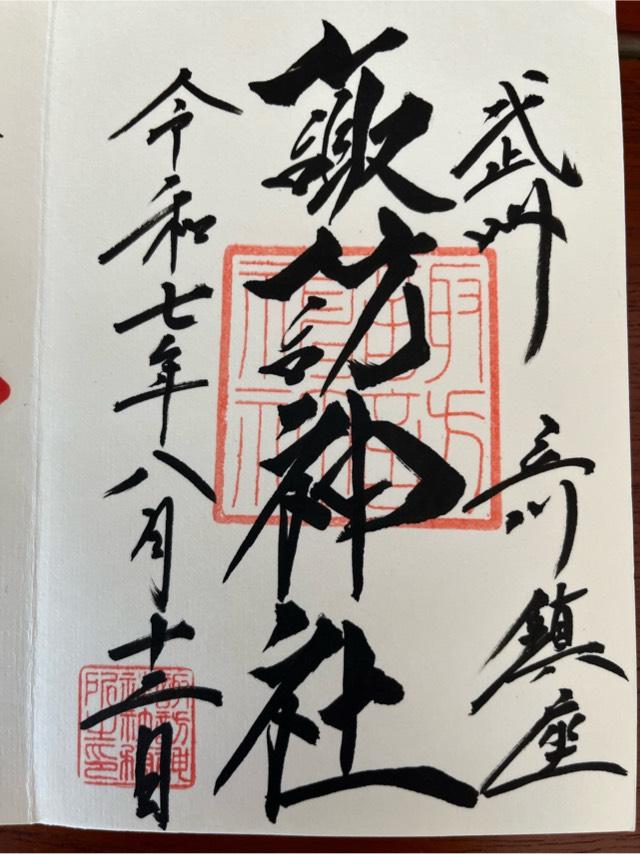 武州 立川鎮座
諏訪神社
令和七年八月十三日
諏訪
神社
諏訪神
社社務
所之印